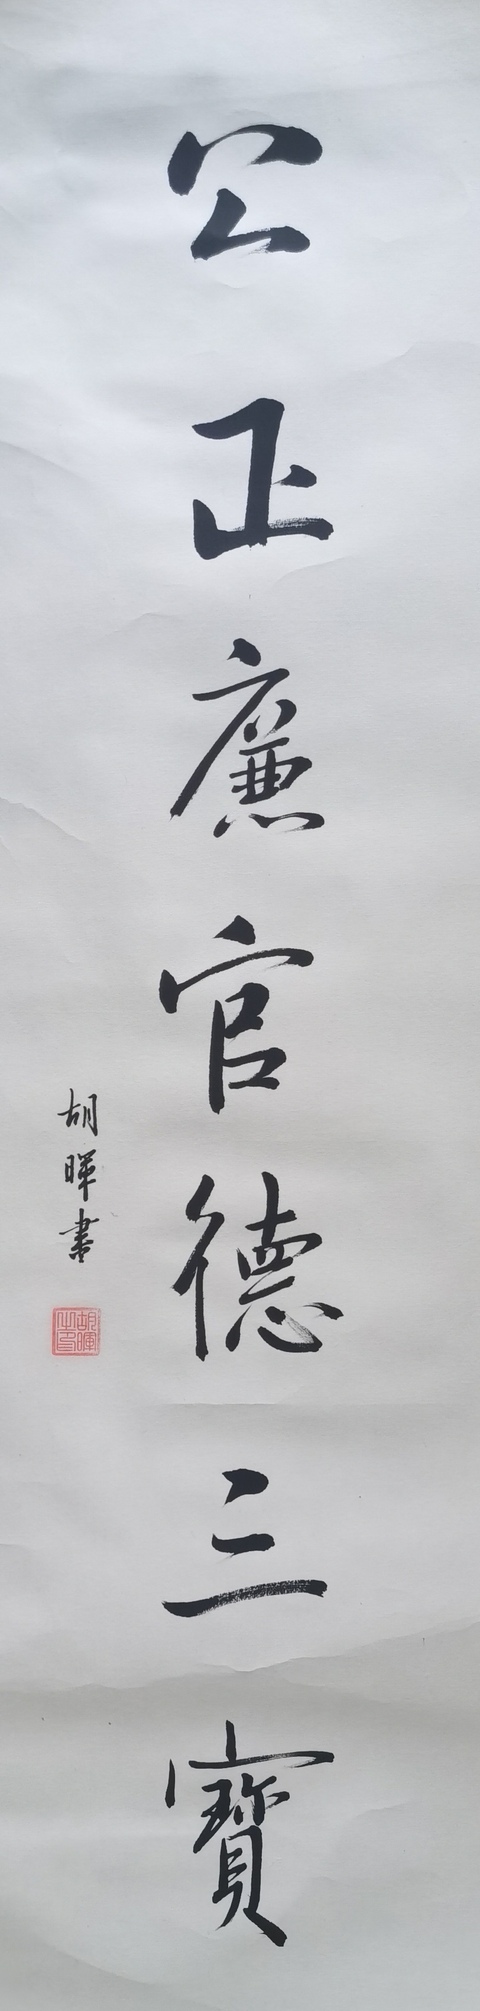 公正廉官德三寶
胡暉書
胡暉之印